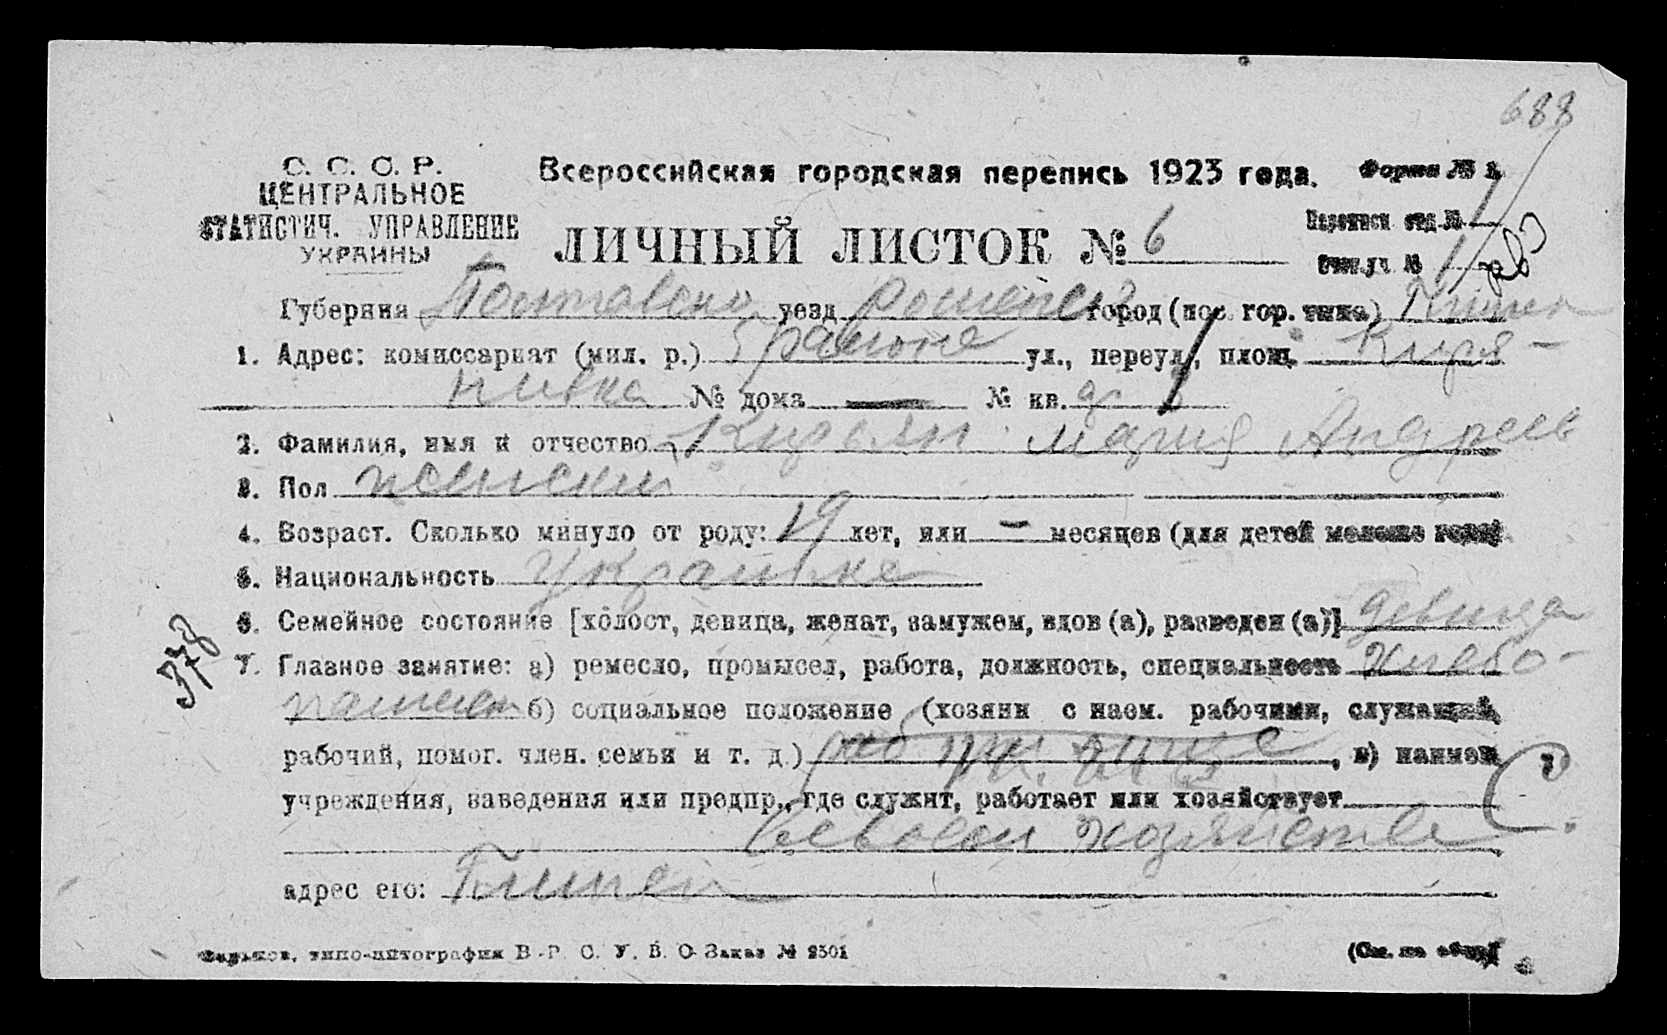 688
С. С. С. Р.
ЦЕНТРАЛЬНОЕ
СТАТИСТИЧ. УПРАВЛЕНИЕ
УКРАИНЫ
Всероссийская городская перепись 1923 года.
Форма № 1.
ЛИЧНЫЙ ЛИСТОК № 6
Переписн. отд. № 1
Счетн. уч. № 1
Губерния Полтавская уезд город (пос. гор. типа)
1. Адрес: комиссариат (мил. р.) 5 района ул., переул., площ. Кирья-
нивка № дома — № кв.
2. Фамилия, имя и отчество Кирьян Мария Андреев
3. Пол женский
4. Возраст. Сколько минуло от роду: 19 лет, или — месяцев (для детей моложе года)
5. Национальность Украинка
6. Семейное состояние [холост, девица, женат, замужем, вдов (а), разведен (а)] девица
7. Главное занятие: а) ремесло, промысел, работа, должность, специальность Хлебо-
пашество б) социальное положение (хозяин с наем. рабочими, служащий,
рабочий, помог. член. семьи и т. д.) , в) наимен.
учреждения, заведения или предпр., где служит, работает или хозяйствует
в своем хозяйстве
адрес его:
Харьков, типо-литография В. Р. С. У. В. О. Заказ № 2501
(См. на обор.)
378